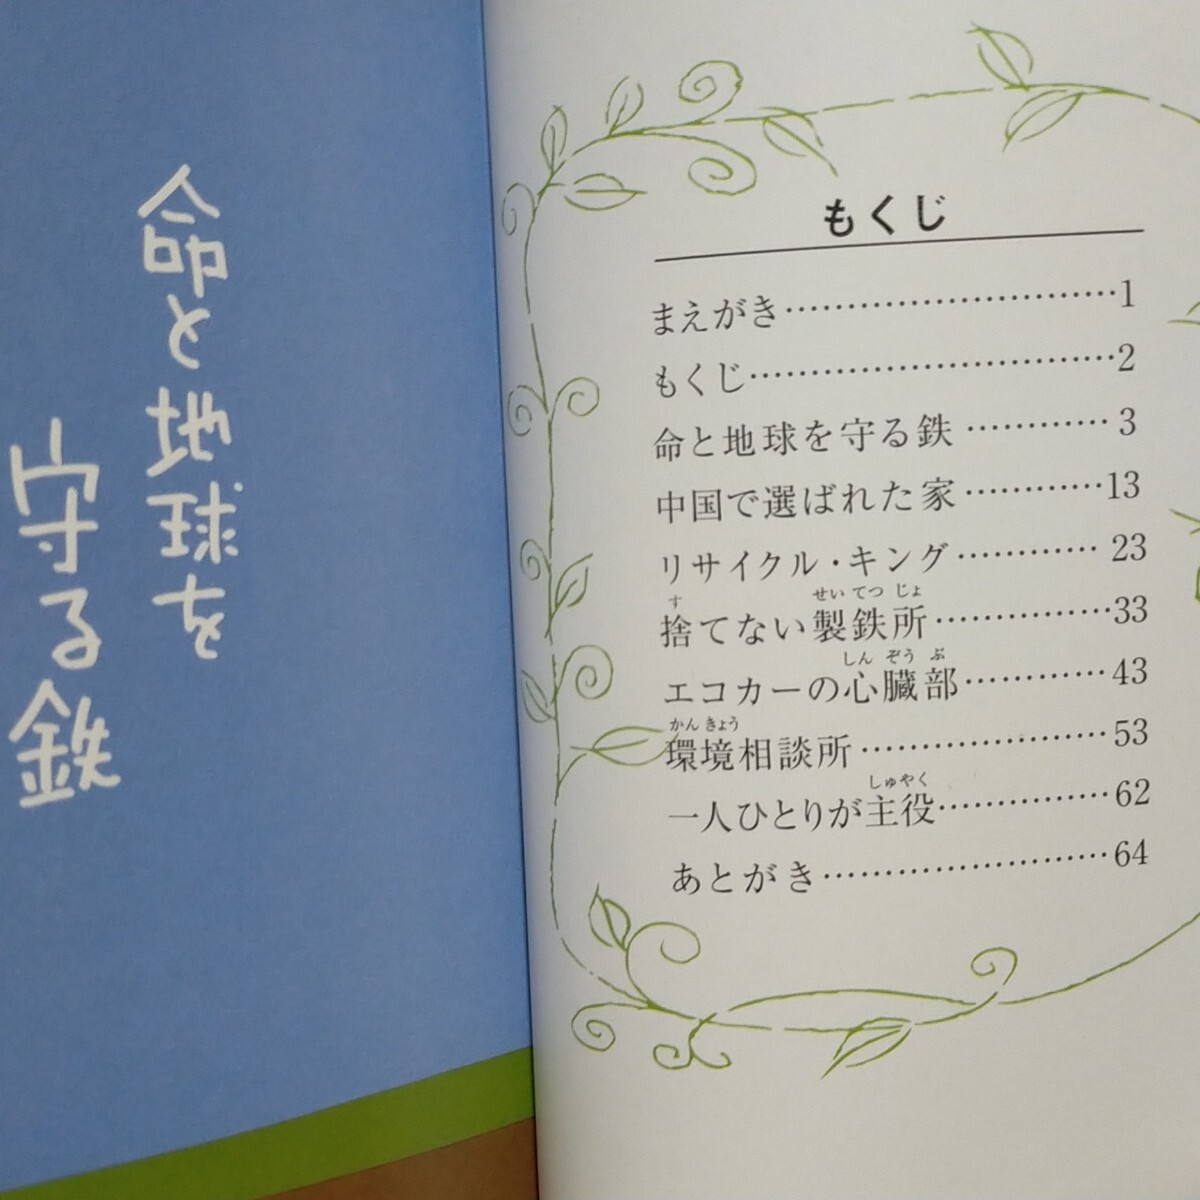 命と地球を
守る鉄
もくじ
まえがき…………………………1
もくじ……………………………2
命と地球を守る鉄…………3
中国で選ばれた家…………13
リサイクル・キング…………23
す せいてつじょ
捨てない製鉄所……………33
しんぞうぶ
エコカーの心臓部…………43
かんきょう
環境相談所…………………53
しゅやく
一人ひとりが主役……………62
あとがき……………………64